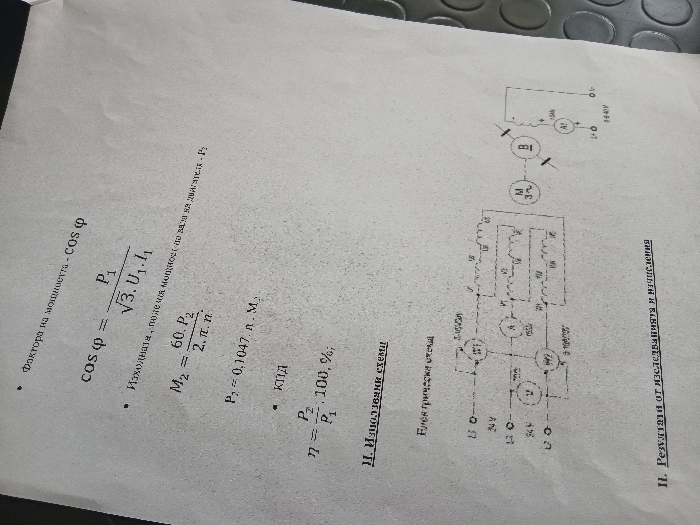 • Фактора на мощността - cos φ
cos φ = P₁ / √3. U₁. I₁
• Изходната, полезна мощност по вала на двигателя - P₂
M₂ = 60. P₂ / 2. π. n.
P₂ = 0,1047. n. M₂
• КПД
η = P₂ / P₁ . 100, %;
II. Използвани схеми
Електрически схеми
L3
24V
A
V
M
3~
B
A1
II. Резултати от изследванията и изчисления